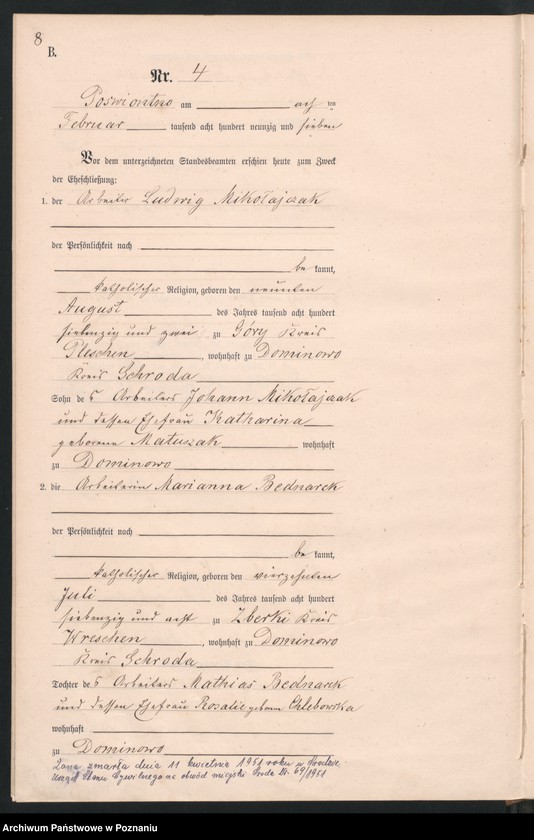 8
B.
Nr. 4
Poswiontno am acht ten
Februar tausend acht hundert neunzig und sieben
Vor dem unterzeichneten Standesbeamten erschien heute zum Zweck
der Eheschließung:
1. der Arbeiter Ludwig Mikołajczak
der Persönlichkeit nach
be kannt,
katholischer Religion, geboren den neunten
August des Jahres tausend acht hundert
siebenzig und zwei zu Góry Kreis
Pleschen, wohnhaft zu Dominowo
Kreis Schroda
Sohn des Arbeiters Johann Mikołajczak
und dessen Ehefrau Katharina
geborene Matuszak wohnhaft
zu Dominowo
2. die Arbeiterin Marianna Bednarek
der Persönlichkeit nach
be kannt,
katholischer Religion, geboren den vierzehnten
Juli des Jahres tausend acht hundert
siebenzig und acht zu Zberki Kreis
Wreschen, wohnhaft zu Dominowo
Kreis Schroda
Tochter des Arbeiters Mathias Bednarek
und dessen Ehefrau Rosalie geborene Chlebowska
wohnhaft
zu Dominowo
Żona zmarła dnia 11 kwietnia 1951 roku w Środzie
Urząd Stanu Cywilnego obwód miejski Środa Nr. 69/1951
Archiwum Państwowe w Poznaniu